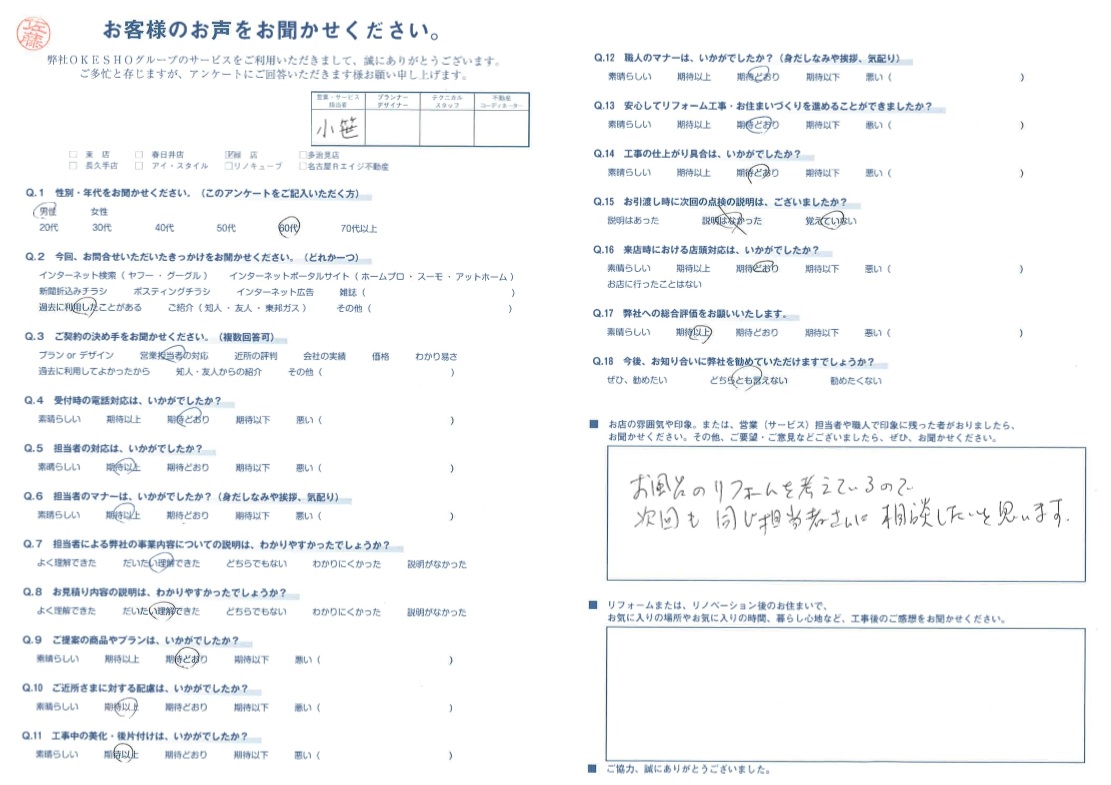 佐藤
お客様のお声をお聞かせください。
弊社OKESHOグループのサービスをご利用いただきまして、誠にありがとうございます。
ご多忙と存じますが、アンケートにご回答いただきます様お願い申し上げます。
営業・サービス担当者 プランナーデザイナー テクニカルスタッフ 不動産コーディネーター
小笹
□ 東 店 □ 春日井店 店 □多治見店
□ 長久手店 □ アイ・スタイル □リノキューブ □名古屋Rエイジ不動産
Q.1 性別・年代をお聞かせください。（このアンケートをご記入いただく方）
男性 女性
20代 30代 40代 50代 60代 70代以上
Q.2 今回、お問合せいただいたきっかけをお聞かせください。（どれか一つ）
インターネット検索（ヤフー・グーグル） インターネットポータルサイト（ホームプロ・スーモ・アットホーム）
新聞折込みチラシ ポスティングチラシ インターネット広告 雑誌（ ）
過去に利用したことがある ご紹介（知人・友人・東邦ガス） その他（ ）
Q.3 ご契約の決め手をお聞かせください。（複数回答可）
プラン or デザイン 営業担当者の対応 近所の評判 会社の実績 価格 わかり易さ
過去に利用してよかったから 知人・友人からの紹介 その他（ ）
Q.4 受付時の電話対応は、いかがでしたか？
素晴らしい 期待以上 期待どおり 期待以下 悪い（ ）
Q.5 担当者の対応は、いかがでしたか？
素晴らしい 期待以上 期待どおり 期待以下 悪い（ ）
Q.6 担当者のマナーは、いかがでしたか？（身だしなみや挨拶、気配り）
素晴らしい 期待以上 期待どおり 期待以下 悪い（ ）
Q.7 担当者による弊社の事業内容についての説明は、わかりやすかったでしょうか？
よく理解できた だいたい理解できた どちらでもない わかりにくかった 説明がなかった
Q.8 お見積り内容の説明は、わかりやすかったでしょうか？
よく理解できた だいたい理解できた どちらでもない わかりにくかった 説明がなかった
Q.9 ご提案の商品やプランは、いかがでしたか？
素晴らしい 期待以上 期待どおり 期待以下 悪い（ ）
Q.10 ご近所さまに対する配慮は、いかがでしたか？
素晴らしい 期待以上 期待どおり 期待以下 悪い（ ）
Q.11 工事中の美化・後片付けは、いかがでしたか？
素晴らしい 期待以上 期待どおり 期待以下 悪い（ ）
Q.12 職人のマナーは、いかがでしたか？（身だしなみや挨拶、気配り）
素晴らしい 期待以上 期待どおり 期待以下 悪い（ ）
Q.13 安心してリフォーム工事・お住まいづくりを進めることができましたか？
素晴らしい 期待以上 期待どおり 期待以下 悪い（ ）
Q.14 工事の仕上がり具合は、いかがでしたか？
素晴らしい 期待以上 期待どおり 期待以下 悪い（ ）
Q.15 お引渡し時に次回の点検の説明は、ございましたか？
説明はあった 説明はなかった 覚えていない
Q.16 来店時における店頭対応は、いかがでしたか？
素晴らしい 期待以上 期待どおり 期待以下 悪い（ ）
お店に行ったことはない
Q.17 弊社への総合評価をお願いいたします。
素晴らしい 期待以上 期待どおり 期待以下 悪い（ ）
Q.18 今後、お知り合いに弊社を勧めていただけますでしょうか？
ぜひ、勧めたい どちらとも言えない 勧めたくない
■ お店の雰囲気や印象。または、営業（サービス）担当者や職人で印象に残った者がおりましたら、
お聞かせください。その他、ご要望・ご意見などございましたら、ぜひ、お聞かせください。
お風呂のリフォームを考えているので
次回も同じ担当者さんに相談したいと思います。
■ リフォームまたは、リノベーション後のお住まいで、
お気に入りの場所やお気に入りの時間、暮らし心地など、工事後のご感想をお聞かせください。
■ ご協力、誠にありがとうございました。